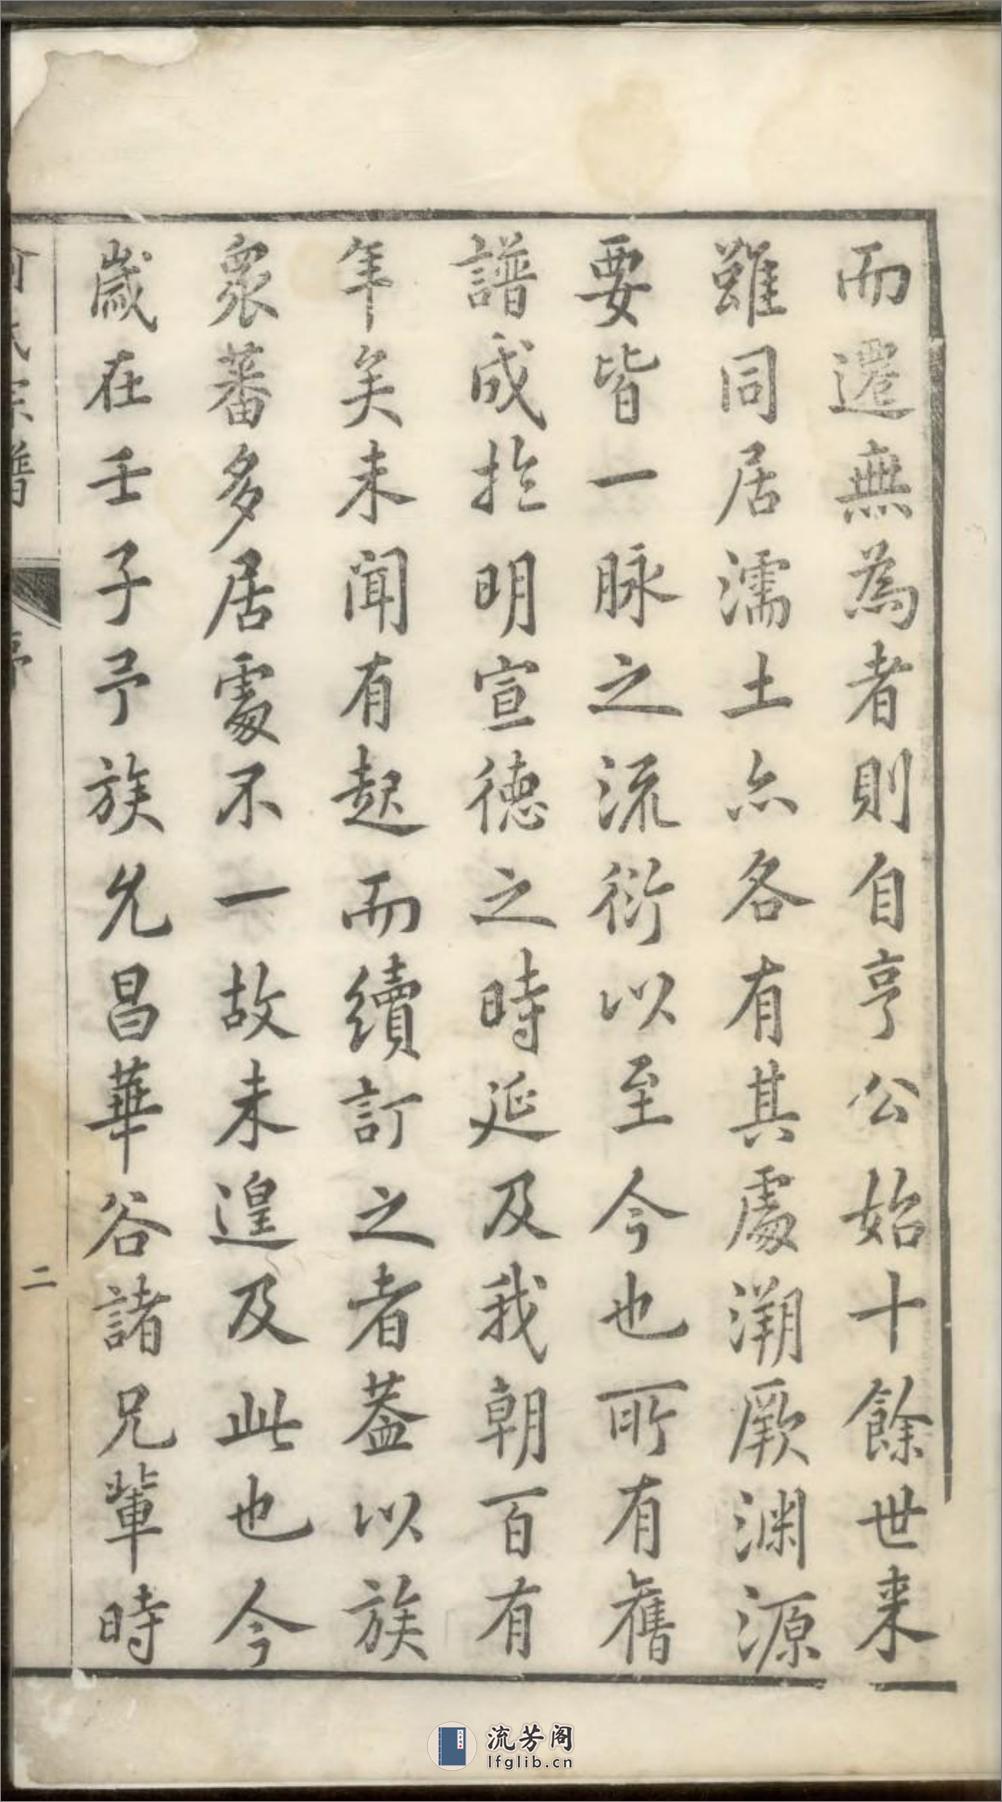 而遷無為者則自亨公始十餘世来
雖同居濡土亦各有其處溯厥渊源
要皆一脉之流衍以至今也所有舊
譜成扵明宣德之時延及我朝百有
年矣未聞有起而續訂之者葢以族
衆蕃多居處不一故未遑及此也今
歲在壬子予族兄昌華谷諸兄輩時
氏宗譜
序
二
流芳阁
lfglib.cn